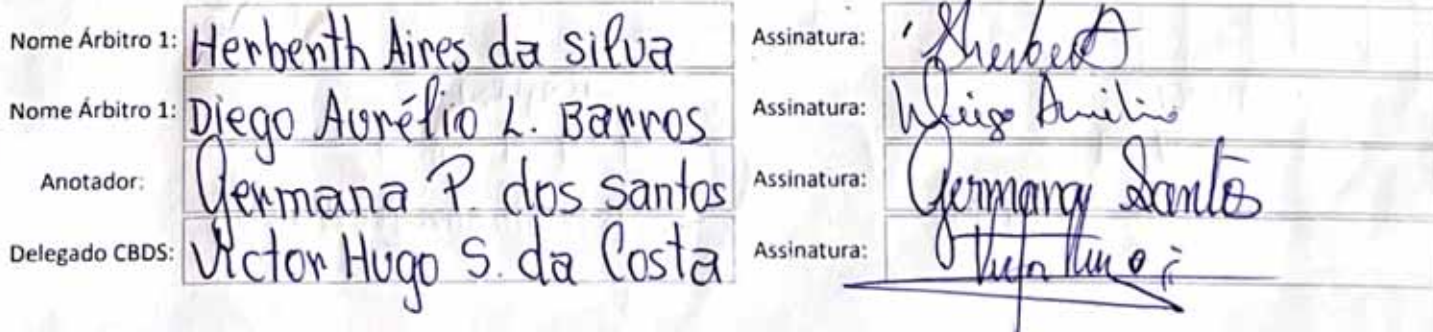 Nome Árbitro 1: Herbenth Aires da Silva Assinatura: Sherbert
Nome Árbitro 1: Diego Aurélio L. Barros Assinatura: Diego Aurélio
Anotador: Germana P. dos Santos Assinatura: Germana Santos
Delegado CBDS: Victor Hugo S. da Costa Assinatura: